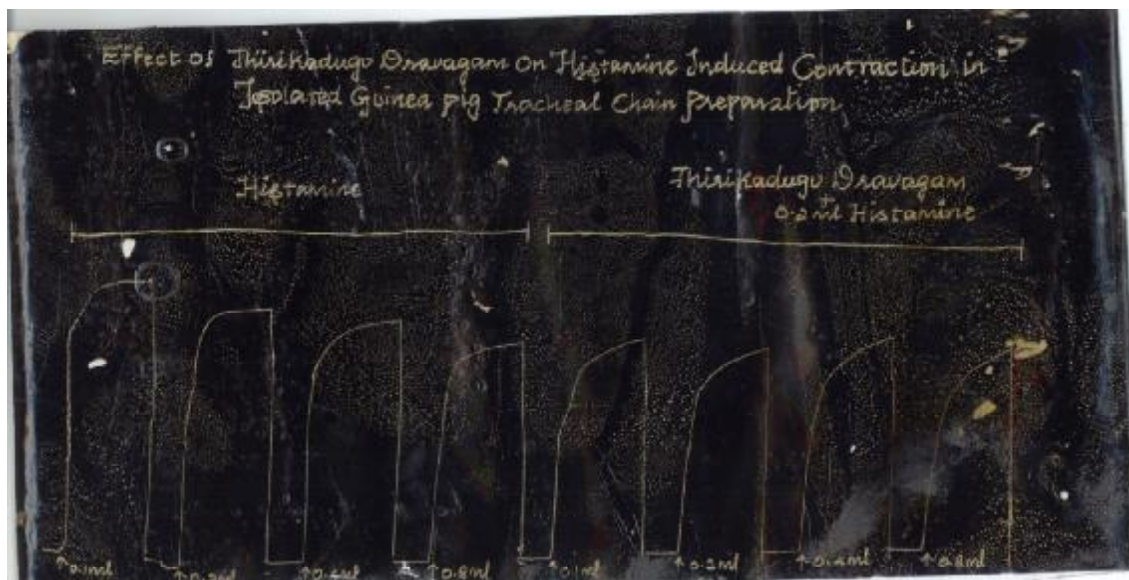 Effect of Thirikadugu Dravagam on Histamine Induced Contraction in
Isolated Guinea pig Tracheal Chain Preparation
Histamine
Thirikadugu Dravagam
+
0.2ml Histamine
↑0.1ml ↑0.2ml ↑0.4ml ↑0.8ml ↑0.1ml ↑0.2ml ↑0.4ml ↑0.8ml